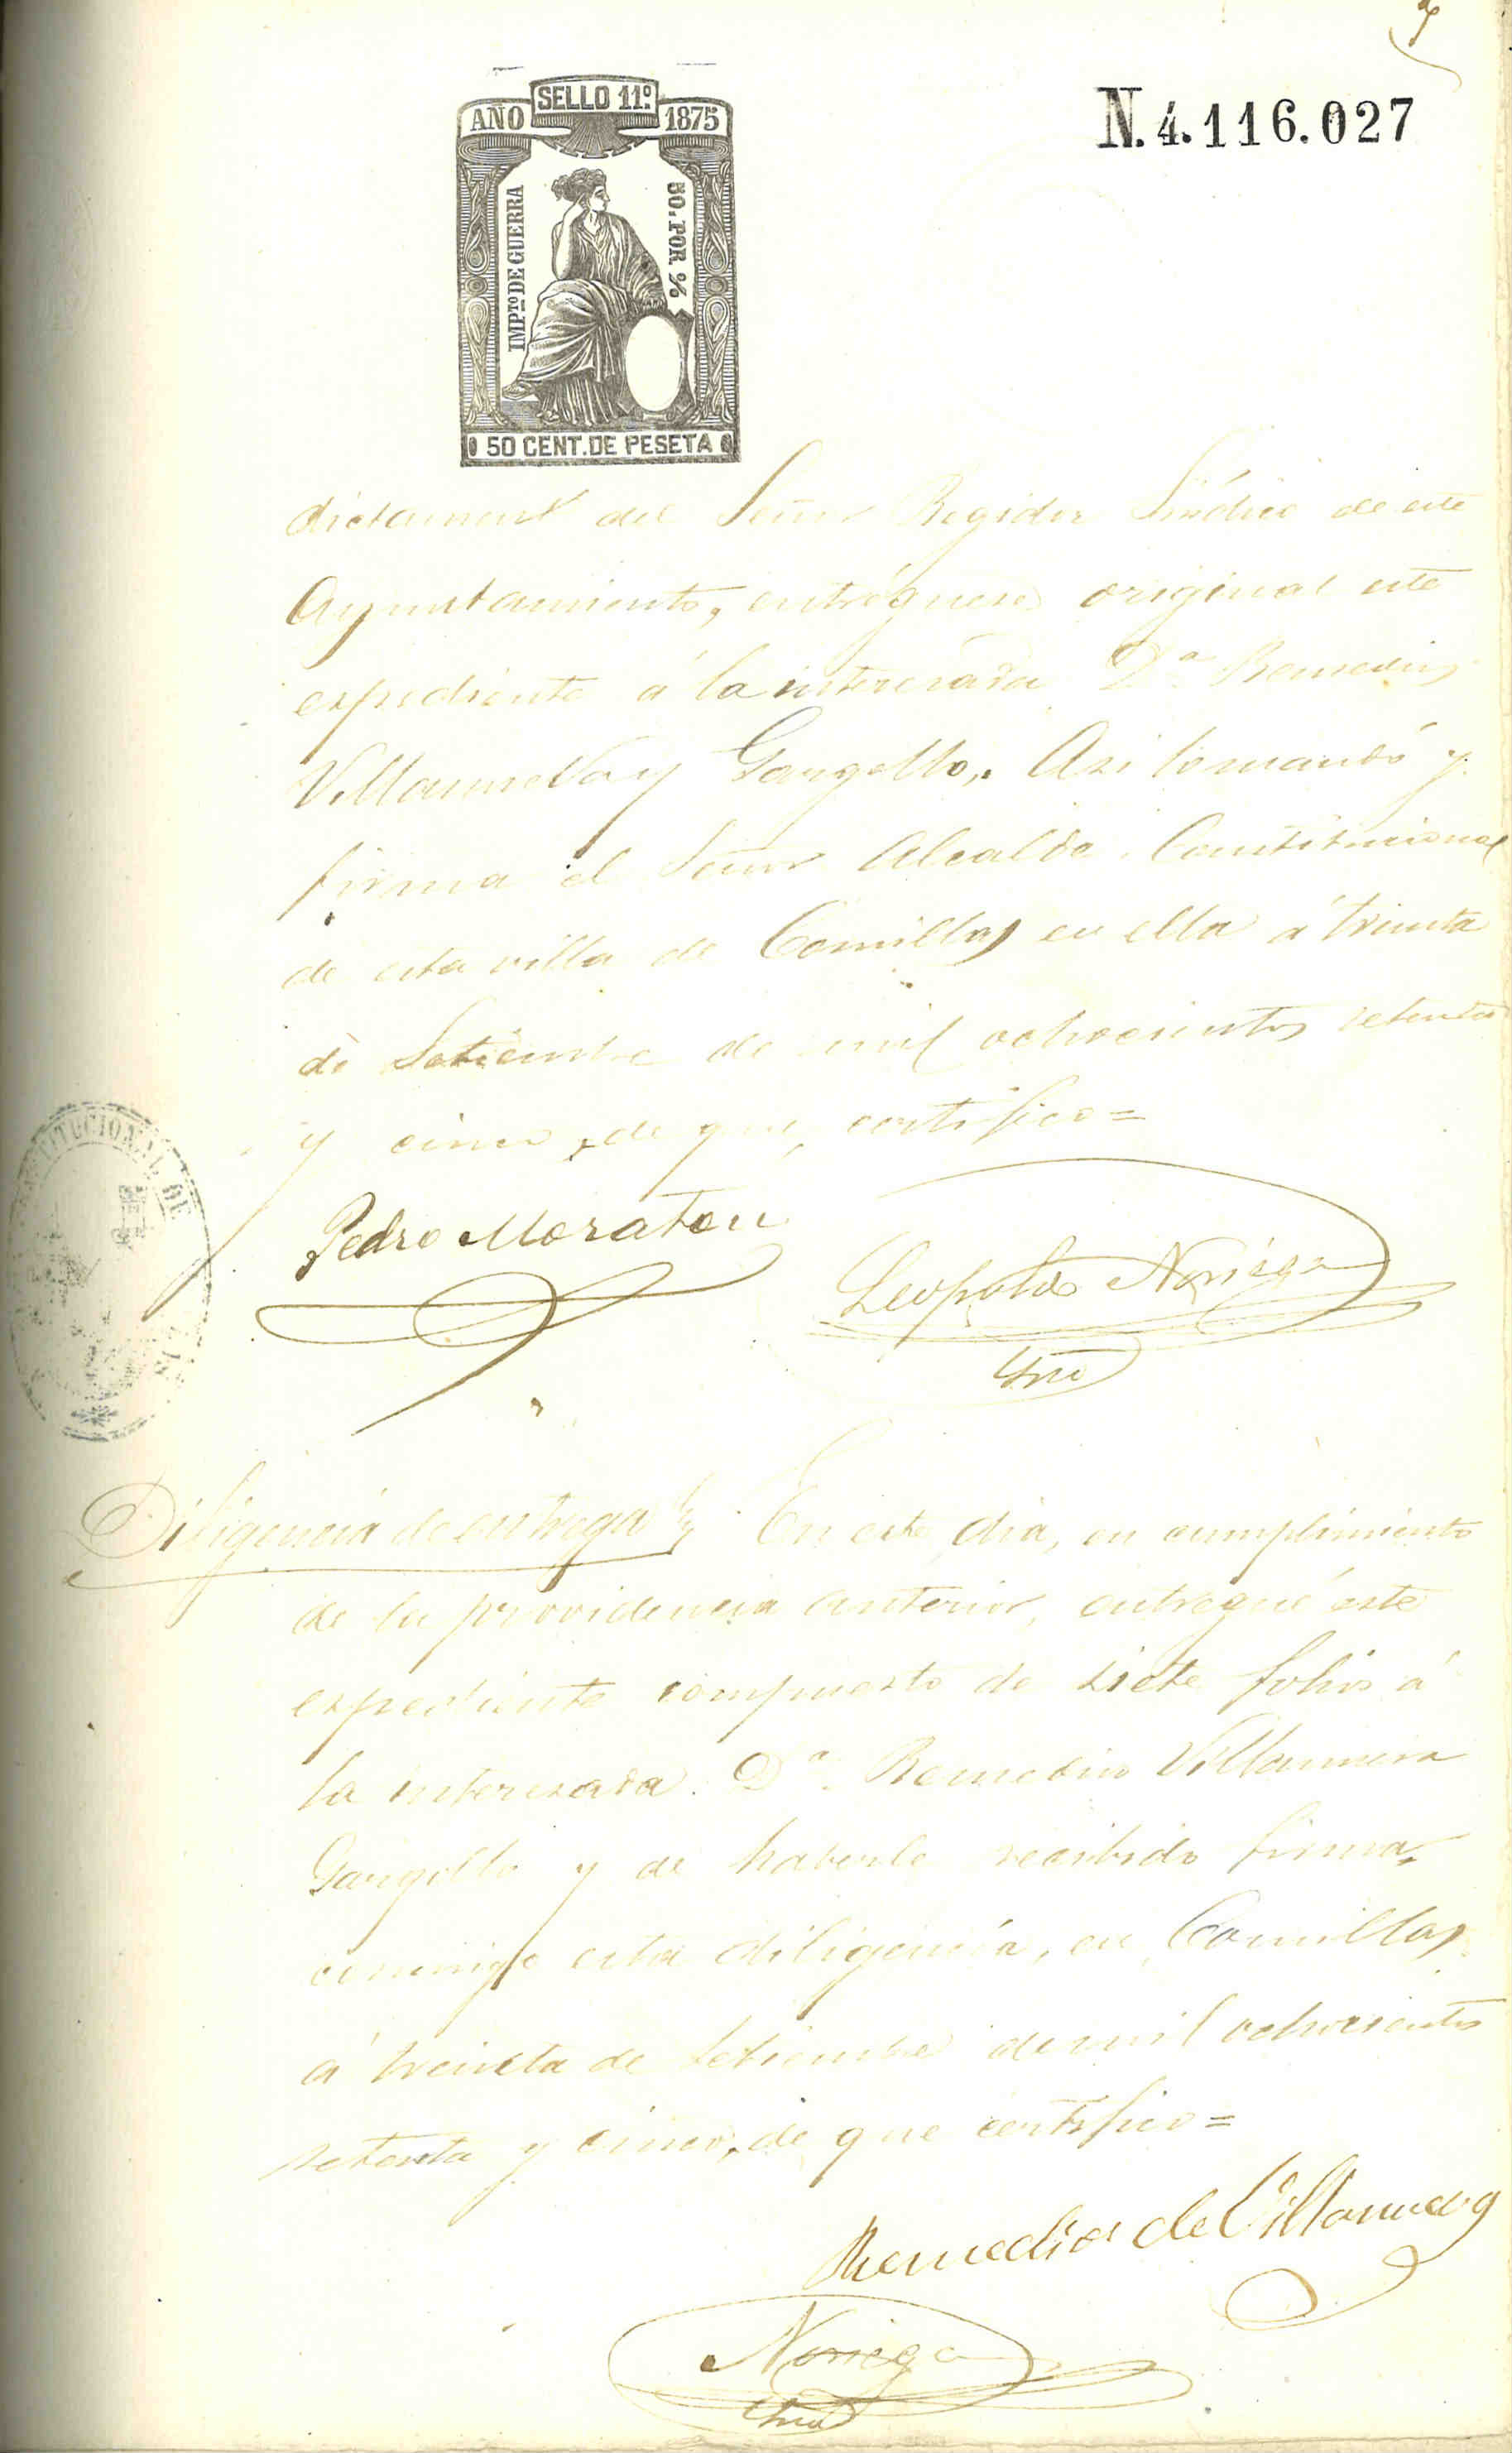 7
SELLO 11º
AÑO 1875
N. 4.116.027
IMPTO DE GUERRA
50. POR %
50 CENT. DE PESETA
dictamen del Señor Regidor Sindico de este
Ayuntamiento, entréguese original este
expediente á la interesada Dª Remedios
Villanueva y Gargollo,. Asi lo mandó y
firma el Señor Alcalde Constitucional
de esta villa de Comillas en ella á treinta
de Setiembre de mil ochocientos setenta
y cinco, de que certifico=
TITUCIONAL DE
Pedro Moraton
Leopoldo Noriega
Srio
Diligencia de entrega En este dia, en cumplimiento
de la providencia anterior, entregué este
expediente compuesto de siete folios á
la interesada Dª Remedios Villanueva
Gargollo y de haberle recibido firma
conmigo esta diligencia, en Comillas
á treinta de Setiembre de mil ochocientos
setenta y cinco, de que certifico=
Remedios de Villanueva
Noriega
Srio